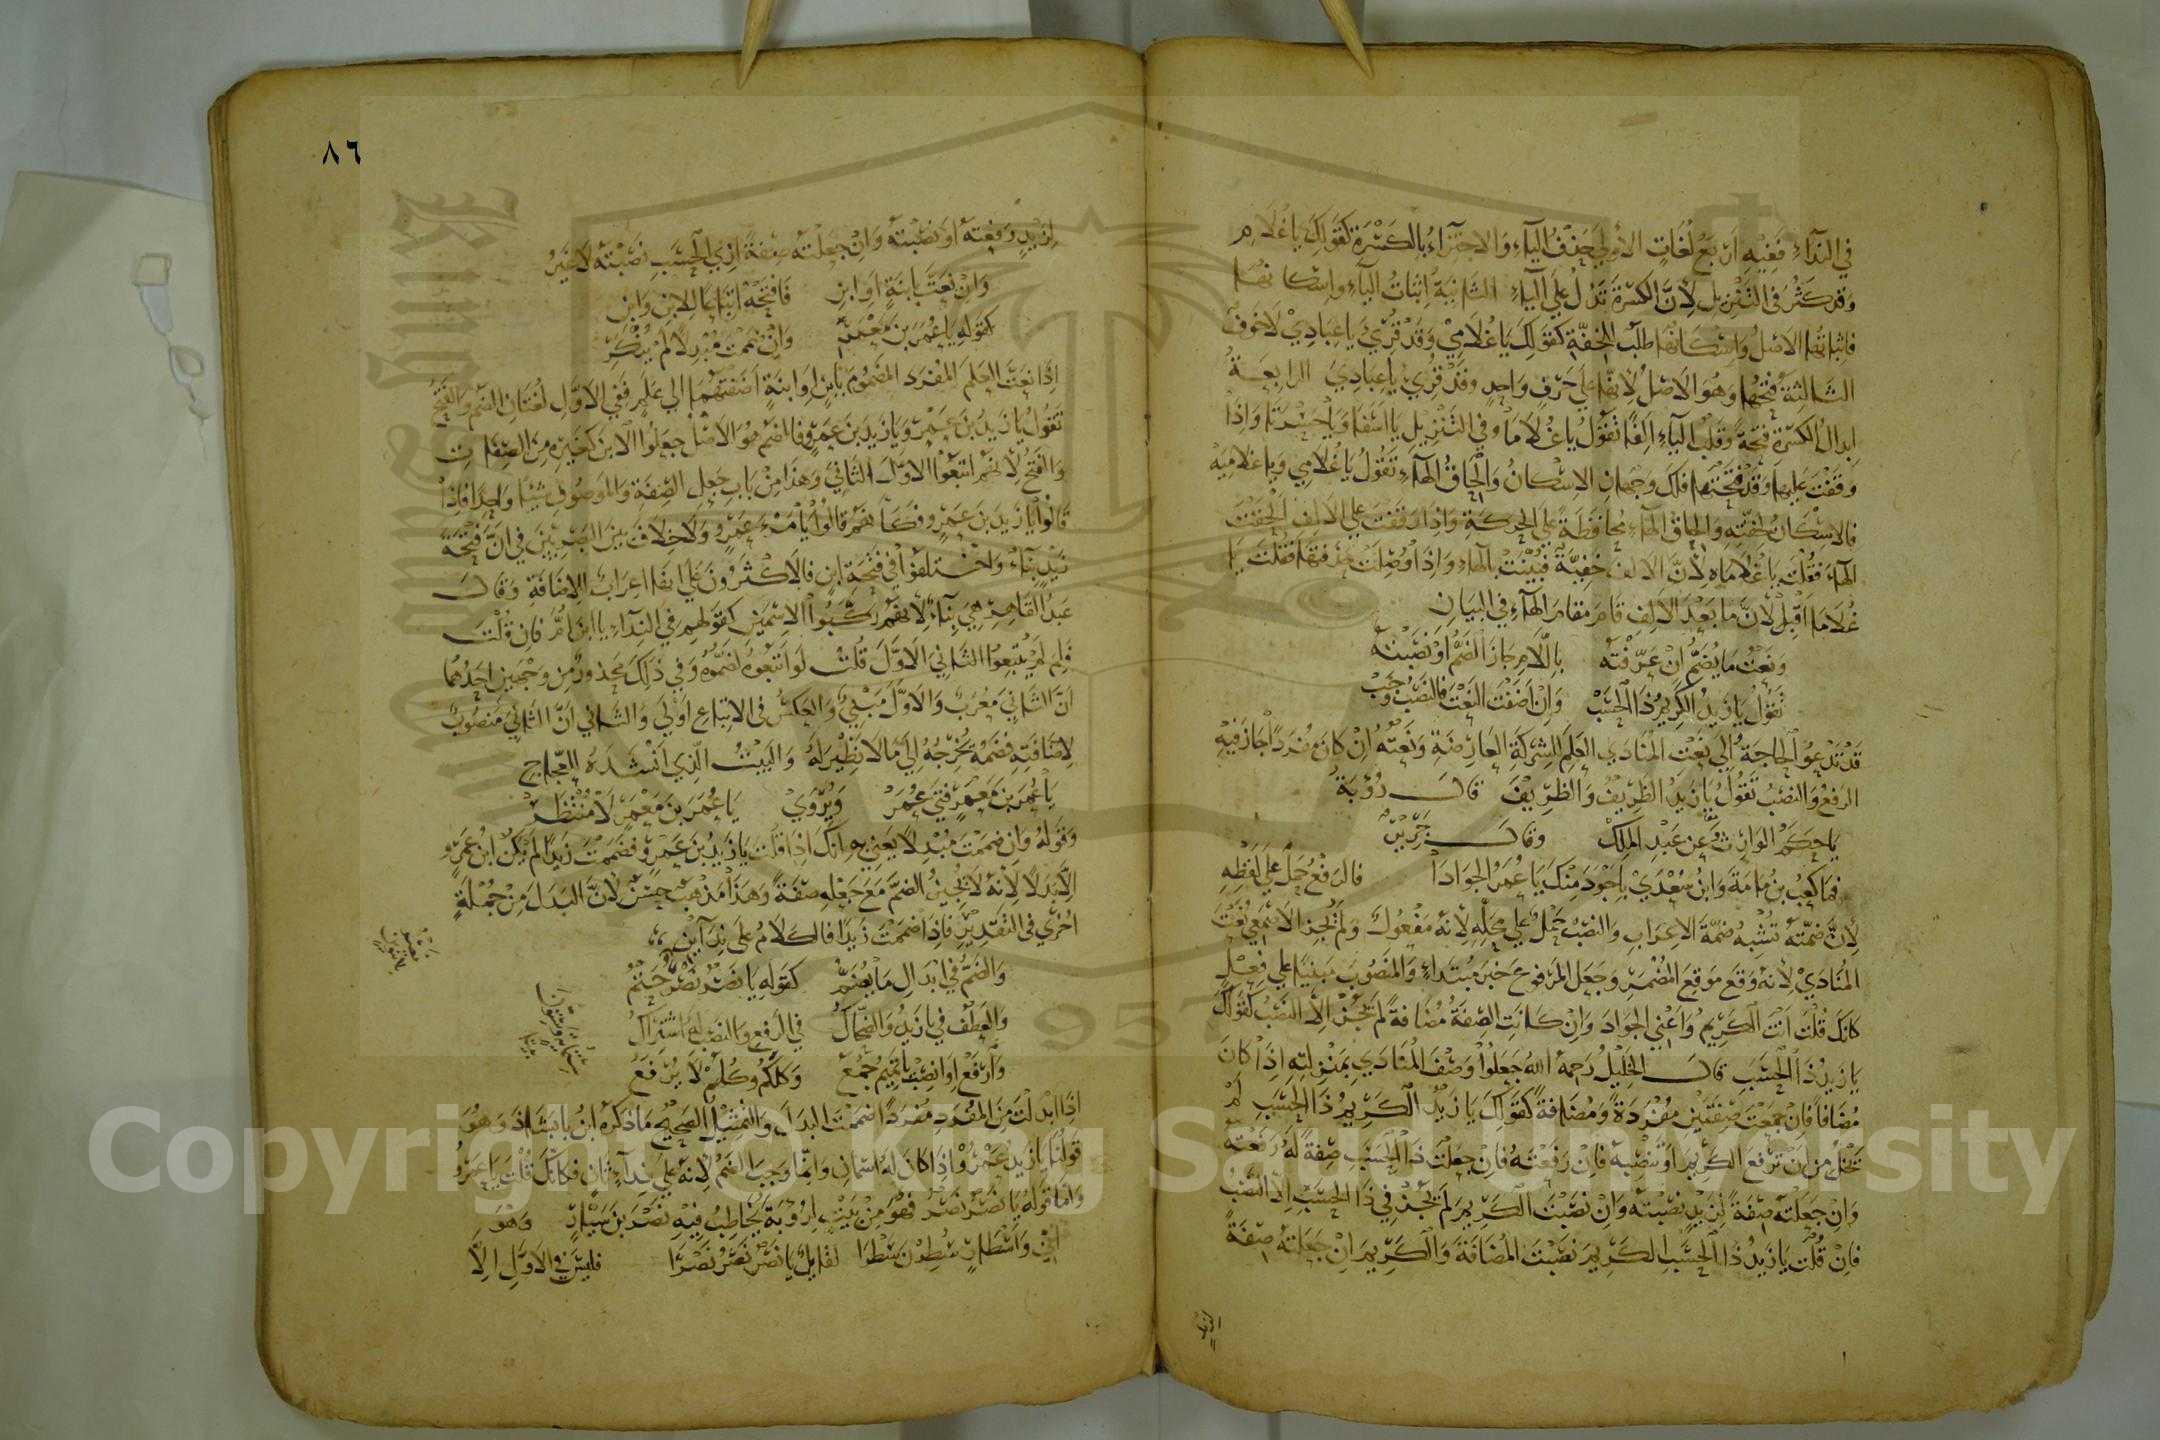 في النداء ففيه اربع لغات الأولى حذف الياء والاجتزاء بالكسرة كقولك ياغلام
وقد كثر في التنزيل لأن الكسرة تدل على الياء الثانية اثبات الياء واسكانها
فاثباتها الاصل واسكانها طلب الخفة كقولك ياغلامي وقد قري ياعبادي لاخوف
الثالثة فتحها وهو الاصل لانها على حرف واحد وقد قري ياعبادي الرابعة
ابدال الكسرة فتحة وقلب الياء الفا تقول ياغلاما وفي التنزيل يااسفا وياحسرتا واذا
وقفت عليها وقد فتحتها فلك وجهان الاسكان والحاق الهاء تقول ياغلامي وياغلاميه
فالاسكان لخفته والحاق الهاء محافظة على الحركة واذا وقفت على الالف الحقت
الهاء فقلت ياغلاماه لأن الالف خفية فبينت بالهاء واذا وصلت حذفتها فقلت يا
غلاما اقبل لأن مابعد الالف قام مقام الهاء في البيان
ونعت مايضم ان عرفته باللام جاز الضم او نصبته
تقول يازيد الكريم ذا الحسب وان اضفت النعت فالنصب وجب
قد تدعو الحاجة الى نعت المنادى العلم للشركة العارضة ونعته ان كان مفردا جاز فيه
الرفع والنصب تقول يازيد الظريف والظريف قال رؤبة
ياحكم الوارث عن عبد الملك وقال جرير
فما كعب بن مامة وابن سعدي باجود منك ياعمر الجوادا فالرفع حمل على لفظه
لأن ضمته تشبه ضمة الاعراب والنصب حمل على محله لأنه مفعول ولم يجز الاصمعي نعت
المنادى لأنه وقع موقع المضمر وجعل المرفوع خبر مبتداء والمنصوب مبنيا على فعل
كانك قلت انت الكريم واعني الجواد وان كانت الصفة مضافة لم يجز الا النصب كقولك
يازيد ذا الحسب قال الخليل رحمه الله جعلوا وصف المنادى بمنزلته اذا كان
مضافا فان جمعت صفتين مفردة ومضافة كقولك يازيد الكريم ذا الحسب لم
تخل من ان ترفع الكريم او تنصبه فان رفعته فان جعلت ذا الحسب صفة له رفعته
وان جعلته صفة لزيد نصبته وان نصبت الكريم لم يجز في ذا الحسب الا النصب
فان قلت يازيد ذا الحسب الكريم نصبت المضافة والكريم ان جعلته صفة
٨٦
لزيد رفعته او نصبته وان جعلته صفة لذي الحسب نصبته لاغير
وان نعت بابنة او ابن فافتحه اتباعا لابن وابن
كقوله ياعمر بن معمر وان ضممت مبدلا لم ينكر
اذا نعت العلم المفرد المضموم بابن او ابنة اضفتهما الى علم ففي الاول لغتان الضم والفتح
تقول يازيد بن عمرو ويازيد بن عمرو فالضم هو الاصل جعلوا الابن كغيره من الصفات
والفتح لأنهم اتبعوا الاول الثاني وهذا من باب جعل الصفة والموصوف شيئا واحدا فاذا
قالوا يازيد بن عمرو فكانهم قالوا يامن عمرو ولاخلاف بين البصريين في ان فتحة
زيد بناء واختلفوا في فتحة ابن فالاكثرون على انها اعراب الاضافة وقال
عبد القاهر هي بناء لأنهم ركبوا الاسمين كقولهم في النداء ياابن ام فان قلت
فلم لم يتبعوا الثاني الاول قلت لو اتبعوه لضموه وفي ذلك محذور من وجهين احدهما
ان الثاني معرب والاول مبني والعكس في الاتباع اولى والثاني ان الثاني منصوب
لاضافته فضمه يخرجه الى مالا نظير له والبيت الذي انشده للعجاج
ياعمر بن معمر فتى عمر ويروي ياعمر بن معمر لامنتظر
وقوله وان ضممت مبدلا يعني به انك اذا قلت يازيد بن عمرو فضممت زيدا لم يكن ابن عمرو
الا بدلا لأنه لايجيز الضم مع جعله صفة وهذا مذهب حسن لأن البدل من جملة
اخرى في التقدير فاذا ضممت زيدا فالكلام على نداءين
والضم في ابدال مايضم كقوله يانصر نصر حتم
والعطف في يازيد والضحاك في الرفع والنصب له اشتراك
وارفع او انصب ياتميم جمع وكلكم وكلهم لايرفع
اذا ابدلت من المفرد مفردا ضممت البدل والتمثيل الصحيح ماذكره ابن بابشاذ وهو
قولنا يازيد عمرو اذا كان له اسمان وانما وجب الضم لأنه على نداء ثان فكانك قلت ياعمرو
واما قوله يانصر نصر فهو من بيت لرؤبة يخاطب فيه نصر بن سيار وهو
اني واسطار سطرن سطرا لقايل يانصر نصر نصرا فليس في الاول الا
King Saud University
1957
Copyright © King Saud University